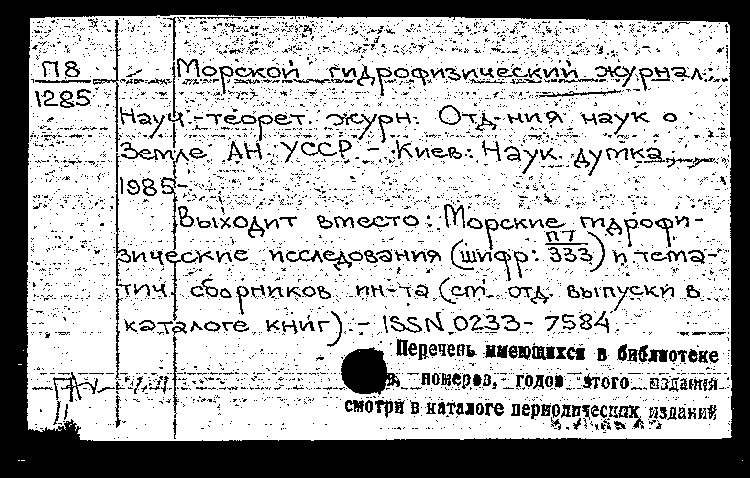 П8
1285
Морской гидрофизический журнал:
Науч.-теорет. журн. Отд-ния наук о
Земле АН УССР. - Киев: Наук. думка,
1985-
Выходит вместо: Морские гидрофи-
зические исследования (шифр: П7/333) и тема-
тич. сборников ин-та (см. отд. выпуски в
каталоге книг). - ISSN 0233-7584.
Перечень имеющихся в библиотеке
номеров, годов этого издания
смотри в каталоге периодических изданий